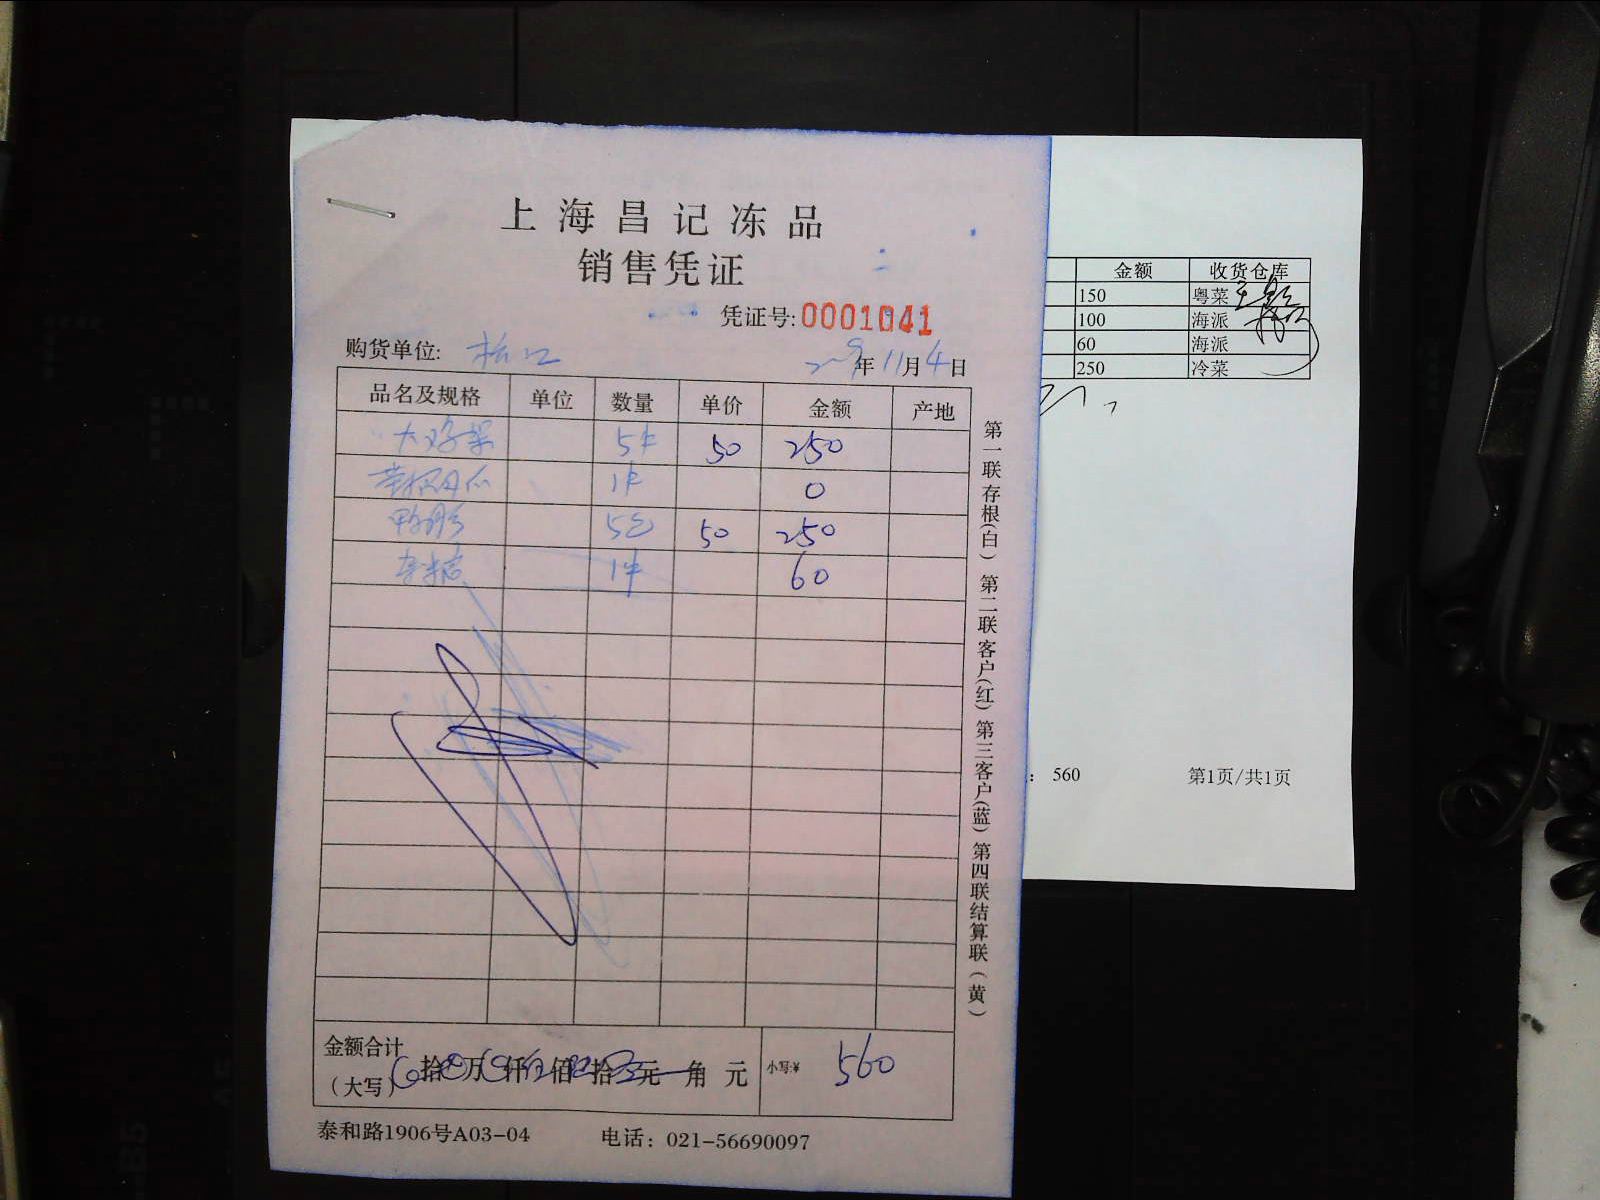 上海昌记冻品
销售凭证
凭证号:0001041
购货单位: 松江
年11月4日
品名及规格 单位 数量 单价 金额 产地
5件 50 250
1件 0
5包 50 250
1件 60
金额合计
(大写) 拾 万 仟 佰 拾 元 角 元 小写:¥ 560
泰和路1906号A03-04 电话: 021-56690097
第一联存根(白) 第二联客户(红) 第三客户(蓝) 第四联结算联(黄)
金额 收货仓库
150 粤菜
100 海派
60 海派
250 冷菜
: 560 第1页/共1页